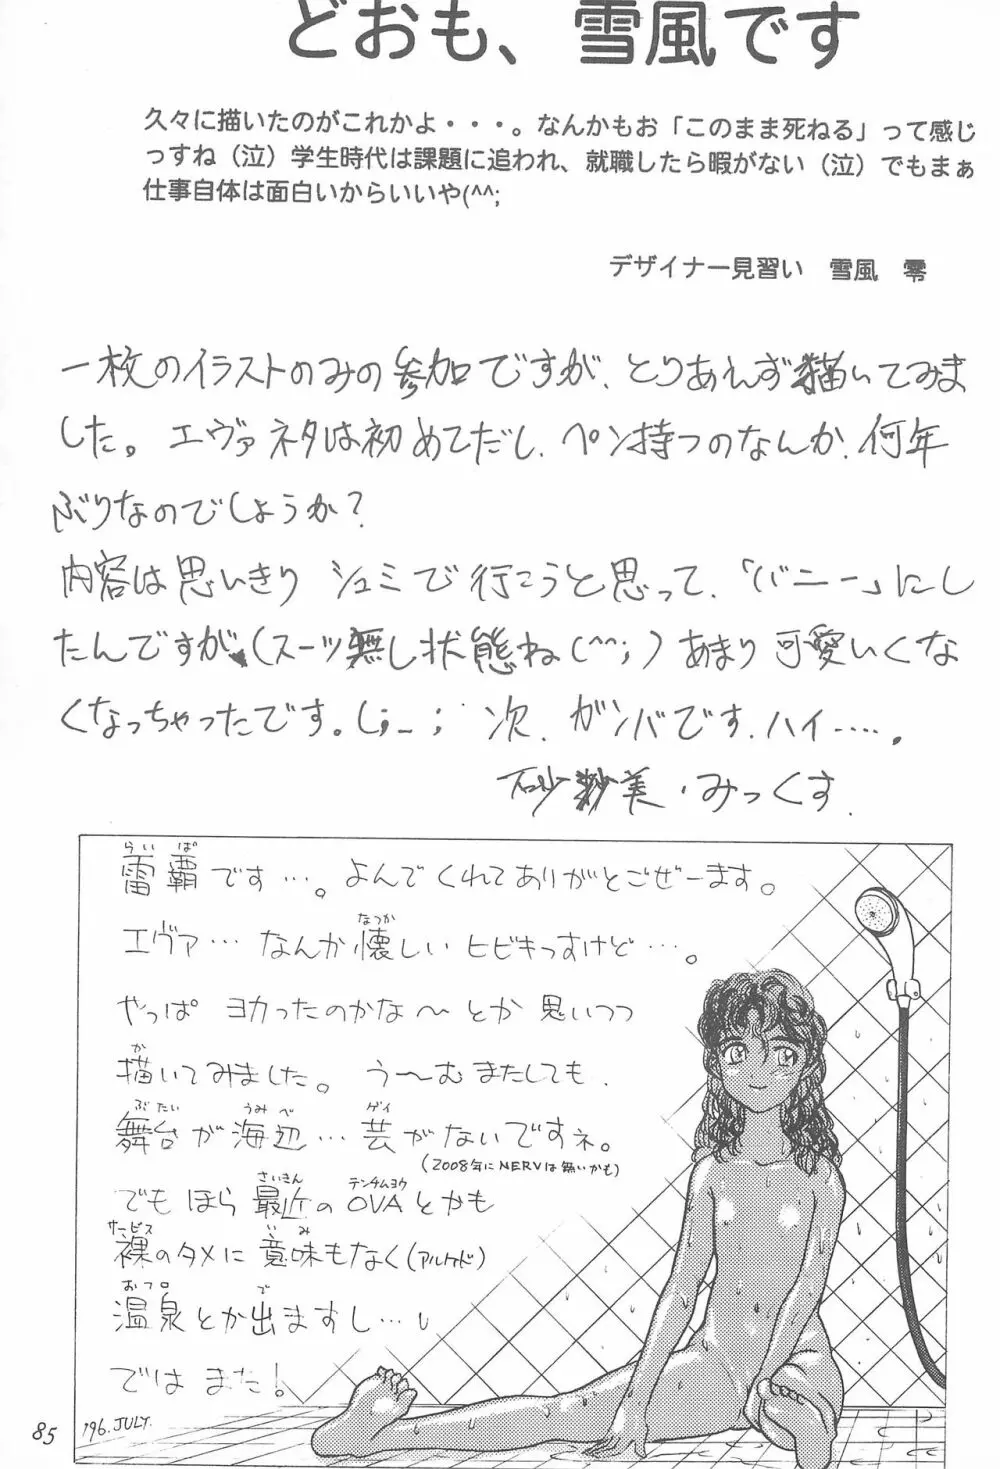 どおも、雪風です
久々に描いたのがこれかよ・・・。なんかもお「このまま死ねる」って感じ
っすね（泣）学生時代は課題に追われ、就職したら暇がない（泣）でもまぁ
仕事自体は面白いからいいや(^^;
デザイナー見習い　雪風　零
一枚のイラストのみの参加ですが、とりあえず描いてみま
した。エヴァネタは初めてだし、ペン持つのなんか、何年
ぶりなのでしょうか？
内容は思いきりシュミで行こうと思って、「バニー」にし
たんですが、(スーツ無し状態ね(^^;)あまり可愛いくな
くなっちゃったです。(;_; 次、ガンバです、ハイ……。
砂紗美・みっくす
らいぱ
雷覇です…。よんでくれてありがとごぜーます。
なつか
エヴァ…なんか懐しいヒビキっすけど…。
やっぱ ヨカったのかな〜とか思いつつ
か
描いてみました。う〜むまたしても、
ぶたい うみべ ゲイ
舞台が海辺…芸がないですネ。
(2008年にNERVは無いかも)
さいきん テンチムヨウ
でもほら最近のOVAとかも
サービス いみ
裸のタメに意味もなく(アルケド)
おフロ で
温泉とか出ますし…
ではまた！
'96.JULY.
85